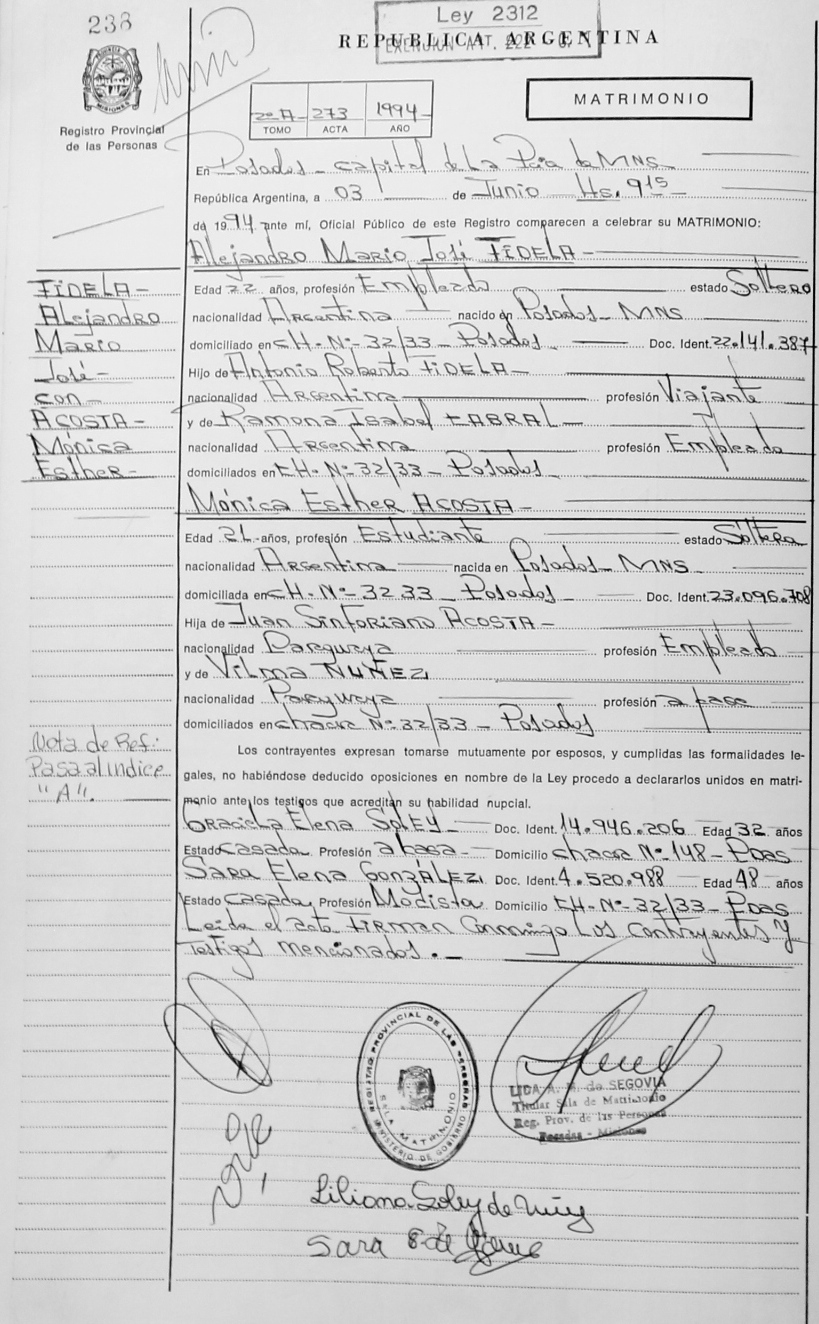 238
Ley 2312
REPUBLICA ARGENTINA
EXENCION ART. 222
Registro Provincial
de las Personas
2º A 273 1994
TOMO ACTA AÑO
MATRIMONIO
En Posadas - Capital de La Pcia de MNS
República Argentina, a 03 de Junio Hs. 9 15
de 1994 ante mí, Oficial Público de este Registro comparecen a celebrar su MATRIMONIO:
Alejandro Mario José FIDELA -
FIDELA -
Alejandro
Mario
José -
con -
ACOSTA -
Mónica
Esther -
Edad 22 años, profesión Empleado estado Soltero
nacionalidad Argentina nacido en Posadas - MNS
domiciliado en CH - Nº 32/33 - Posadas Doc. Ident. 22.141.387
Hijo de Antonio Roberto FIDELA -
nacionalidad Argentina profesión Viajante
y de Ramona Isabel CABRAL -
nacionalidad Argentina profesión Empleada
domiciliados en CH - Nº 32/33 - Posadas
Mónica Esther ACOSTA -
Edad 21 años, profesión Estudiante estado Soltera
nacionalidad Argentina nacida en Posadas - MNS
domiciliada en CH - Nº 32 33 - Posadas - Doc. Ident. 23.096.708
Hija de Juan Sinforiano ACOSTA -
nacionalidad Paraguaya profesión Empleado
y de Vilma NUÑEZ
nacionalidad profesión
domiciliados en chacra Nº 32/33 - Posadas
Nota de Ref:
Pasa al indice
"A".
Los contrayentes expresan tomarse mutuamente por esposos, y cumplidas las formalidades le-
gales, no habiéndose deducido oposiciones en nombre de la Ley procedo a declararlos unidos en matri-
monio ante los testigos que acreditan su habilidad nupcial.
Graciela Elena SOLEY - Doc. Ident. 14.946.206 Edad 32 años
Estado casada Profesión Domicilio chacra Nº 148 - Pdas
Sara Elena GONZÁLEZ Doc. Ident. 4.520.988 Edad 48 años
Estado Casada Profesión Modista Domicilio CH - Nº 32/33 - Pdas
Leida el acta FIRMAN Conmigo Los Contrayentes Y
Testigos mencionados . -
REGISTRO PROVINCIAL DE LAS PERSONAS
SALA MATRIMONIO
MINISTERIO DE GOBIERNO
LIDA A. de SEGOVIA
Titular Sala de Matrimonio
Reg. Prov. de las Personas
Posadas - Misiones
Liliana Soley de
Sara de